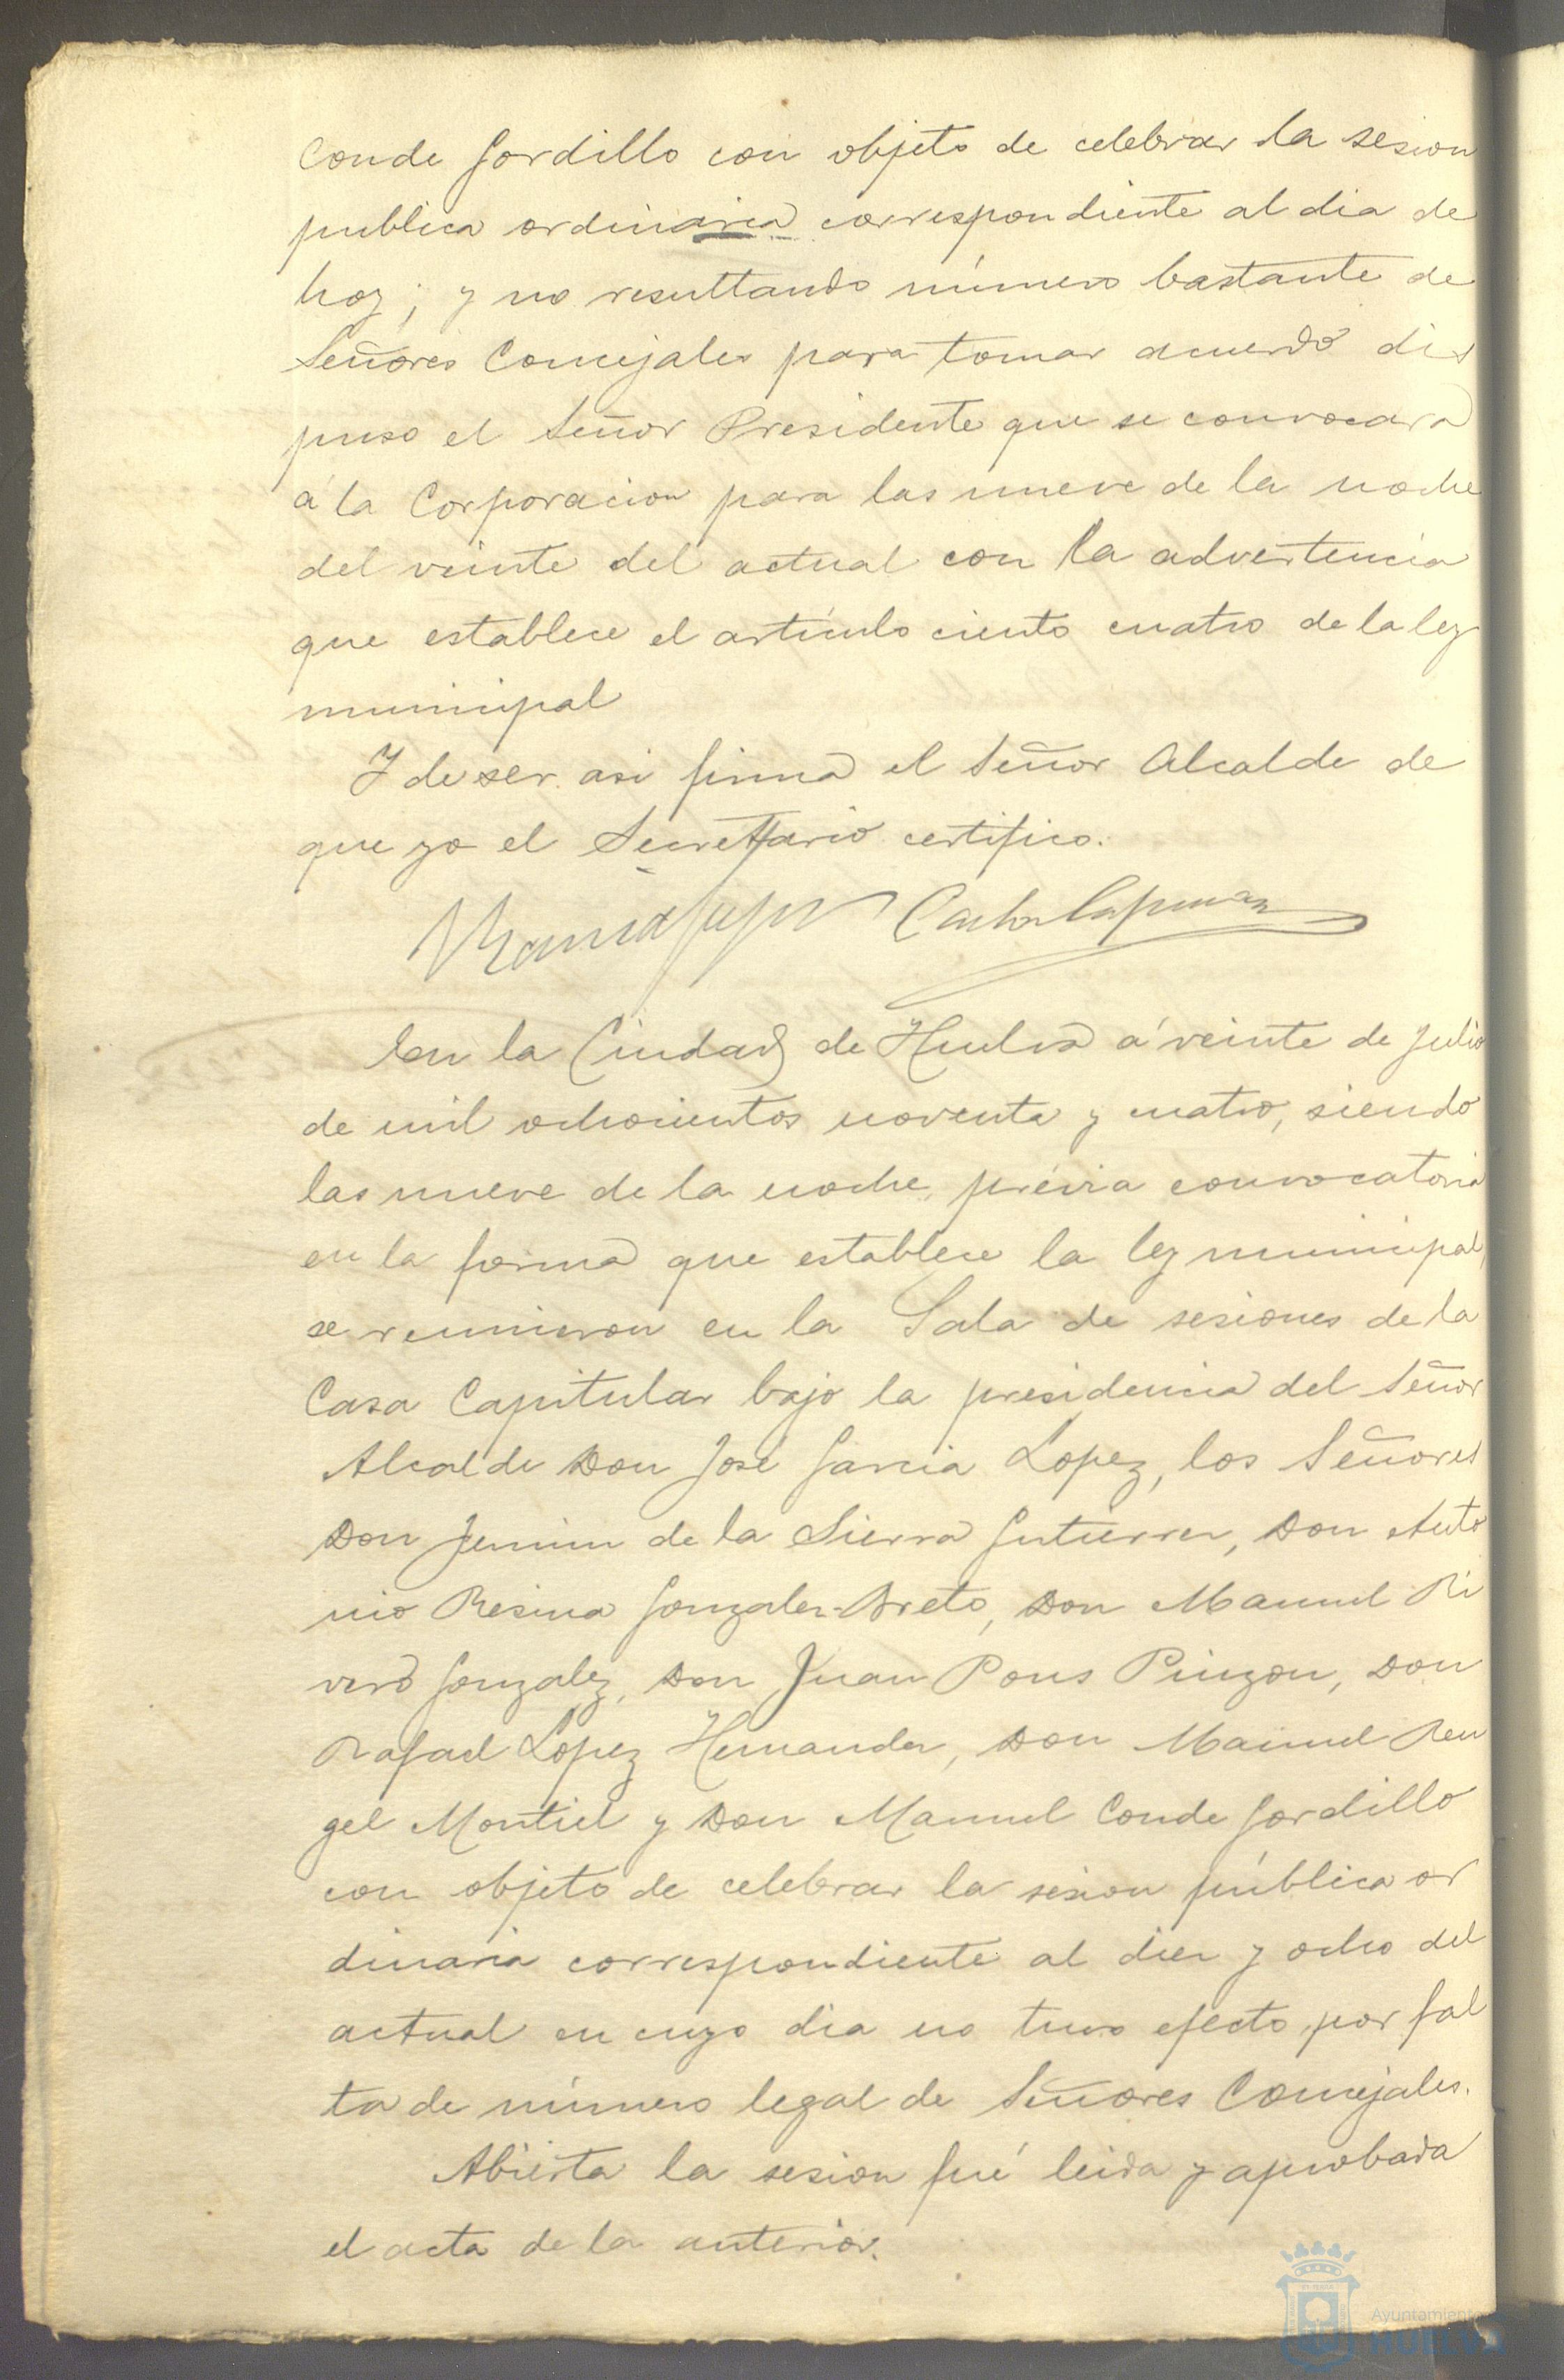 Conde Gordillo con objeto de celebrar la sesion
publica ordinaria correspondiente al dia de
hoy; y no resultando número bastante de
Señores Concejales para tomar acuerdo dis
puso el Señor Presidente que se convocara
á la Corporacion para las nueve de la noche
del veinte del actual con la advertencia
que establece el artículo ciento cuatro de la ley
municipal
Y de ser asi firma el Señor Alcalde de
que yo el Secretario certifico.
En la Ciudad de Huelva á veinte de Julio
de mil ochocientos noventa y cuatro, siendo
las nueve de la noche, prévia convocatoria
en la forma que establece la ley municipal,
se reunieron en la Sala de sesiones de la
Casa Capitular bajo la presidencia del Señor
Alcalde Don José Garcia Lopez, los Señores
Don de la Sierra Gutierrez, Don Anto
nio Resina Gonzalez-Breto, Don Manuel Ri
vero Gonzalez, Don Juan Pons Pinzon, Don
Rafael Lopez Hernandez, Don Manuel Ren
gel Montiel y Don Manuel Conde Gordillo
con objeto de celebrar la sesion pública or
dinaria correspondiente al diez y ocho del
actual en cuyo dia no tuvo efecto por fal
ta de número legal de Señores Concejales.
Abierta la sesion fué leida y aprobada
el acta de la anterior.
Ayuntamiento
HUELVA